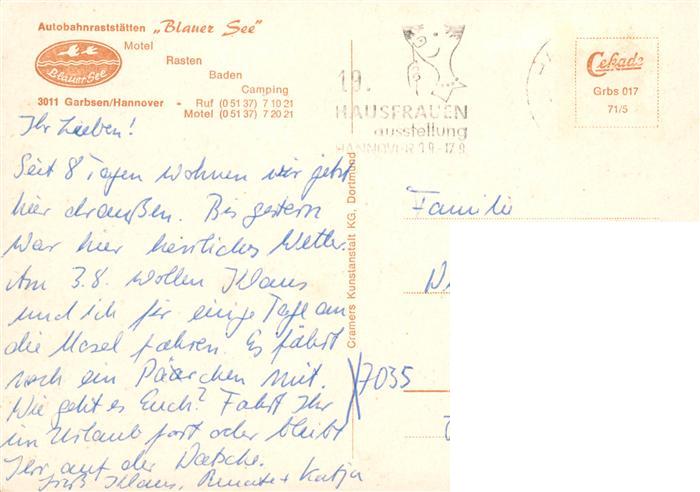 Autobahnraststätten „Blauer See"
Motel
Rasten
Baden
Camping
Blauer See
3011 Garbsen/Hannover - Ruf (0 51 37) 7 10 21
Motel (0 51 37) 7 20 21
19.
HAUSFRAUEN
ausstellung
HANNOVER 1 9.-17.9.
Cekade
Grbs 017
71/5
Cramers Kunstanstalt KG, Dortmund
Ihr Lieben!
Seit 8 Tagen wohnen wir jetzt
hier draußen. Bis gestern
war hier herrliches Wetter.
Am 3.8. wollen Klaus
und ich für einige Tage an
die Mosel fahren. Es fährt
noch ein Päärchen mit.
Wie geht es Euch? Fahrt Ihr
in Urlaub fort oder bleibt
Ihr auf der Datsche.
Klaus, Renate + Katja
Familie
7035